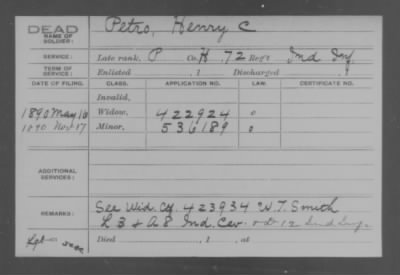 DEAD Petro, Henry C
NAME OF
SOLDIER:
SERVICE: Late rank, P Co. H 72 Reg't Ind Inf.
TERM OF
SERVICE: Enlisted , 1 Discharged , 1
DATE OF FILING. CLASS. APPLICATION NO. LAW. CERTIFICATE NO.
Invalid,
1890 May 16 Widow, 422924 o
1890 Nov 17 Minor, 536189 o
ADDITIONAL
SERVICES:
REMARKS: See Wid. Cf. 423934 W. T. Smith
L 3 & A 8 Ind. Cav. 12 Ind Inf.
Died , 1 , at